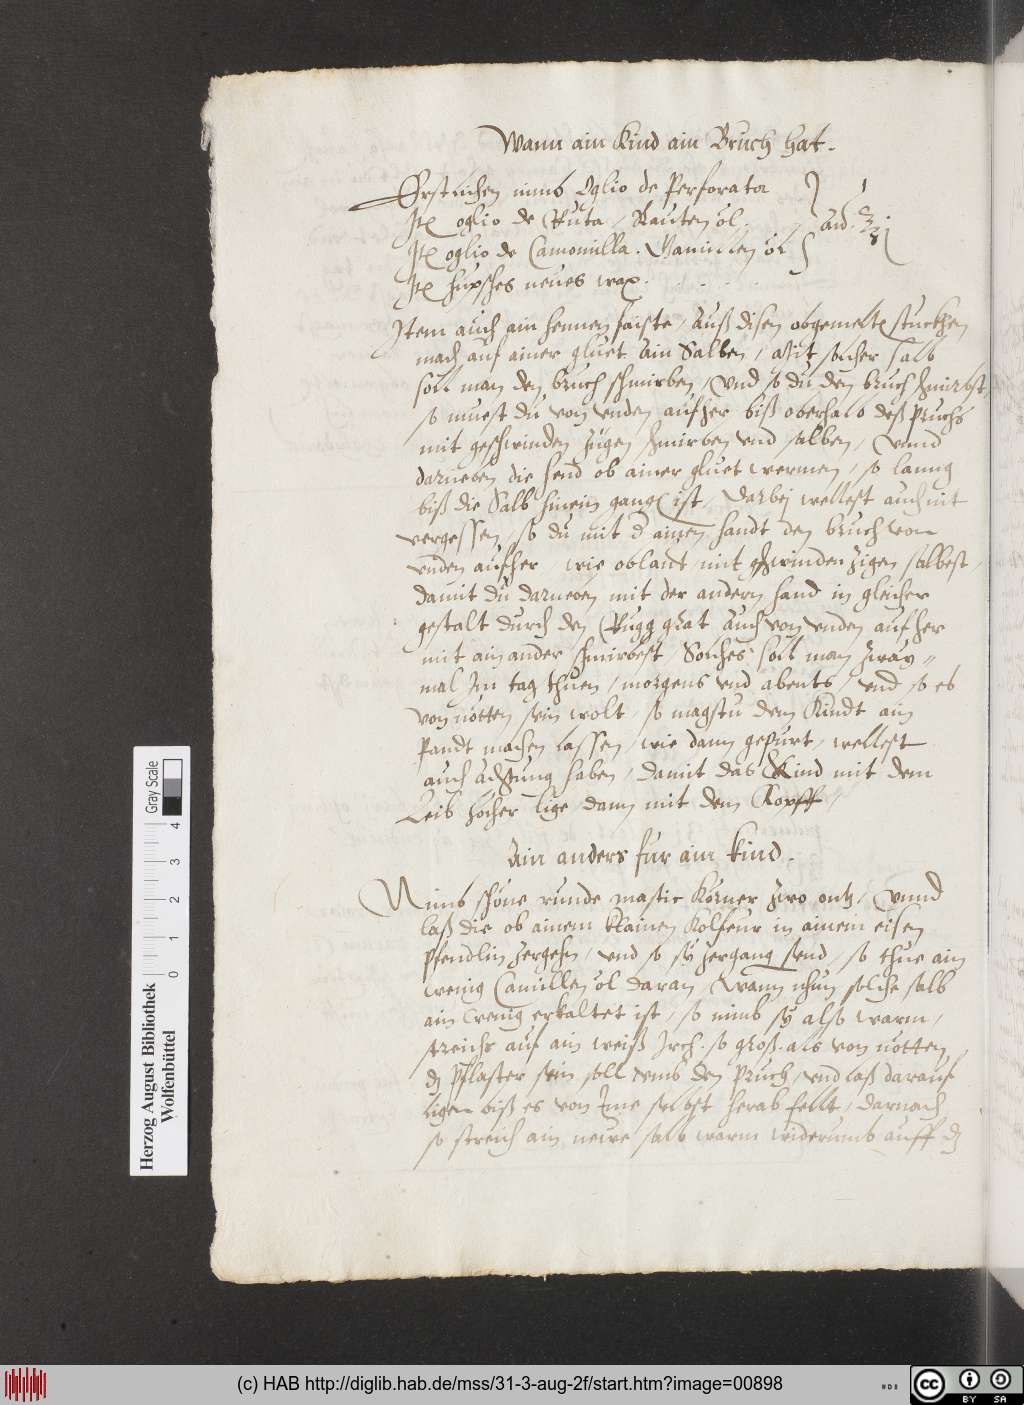 Wann ain Kind ain Bruch hat.
Erstlichen nimb Oglio de Perforata
Itē oglio de Ruta / Rauten öl / an. ʒ j
Itē oglio de Camomilla. Camillen öl
Itē hupsches neues wax.
Item auch ain hennen faiste / Auß disen obgemeltē stuckhen
mach auf ainer gluet Ain Salben / Mit solcher salb
soll man den bruch schmirben / Vnd so du den bruch schmirbst,
so muest du von vnden aufher biß oberhalb deß Pruchs
mit geschwinden zügen schmirben vnd salben / Vnnd
darneben die hend ob ainer gluet wermen / so lanng
biß die Salb hinein gangē ist / Darbej wellest auch nit
vergessen / so du mit d ainen handt den bruch von
vnden aufher / wie oblaut / mit geschwinden zigen salbest /
damit du darneben mit der andern hand in gleicher
gestalt durch den Rugg grat Auch von vnden aufher
mit ainander schmirbest / Solches soll man zway=
mal Im tag thuen / morgens vnd abents / vnd so es
von nötten sein wolt / so magstu dem Kindt ain
Pandt machen lassen / wie dann gepürt / wellest
auch achtung haben / damit das Kind mit dem
Leib höcher lige dann mit dem Kopff /
Ain anders für ain kind.
Nimb schöne runde mastic Körner zwo ontz / Vnnd
laß die ob ainem klainen Kolfeur in ainem eisen
Pfendlin zergehn / vnd so sy zergang send / so thue ain
wenig Camillen öl daran / Wann nhun solche salb
ain wenig erkaltet ist / so nimb sy also warm /
streichs auf ain weiß Irch. so groß. als von nötten
dz Pflaster sein soll vmb den Pruch / vnd laß darauf
ligen biß es von Ime selbst herab fellt / darnach
so streich ain newe salb warm widerumb auff dz
Herzog August Bibliothek
Wolfenbüttel
0 1 2 3 4
Gray Scale
(c) HAB http://diglib.hab.de/mss/31-3-aug-2f/start.htm?image=00898
cc BY SA